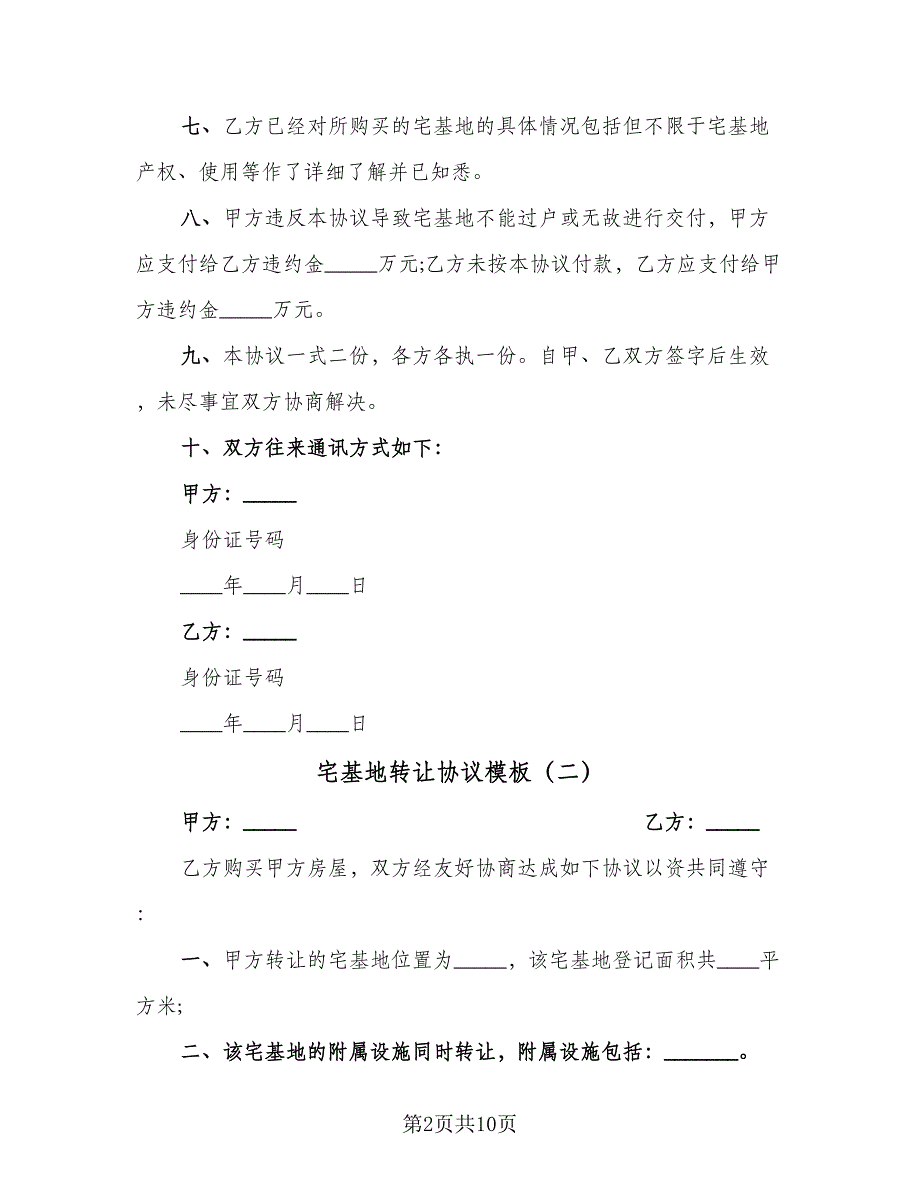 七、乙方已经对所购买的宅基地的具体情况包括但不限于宅基地
产权、使用等作了详细了解并已知悉。
八、甲方违反本协议导致宅基地不能过户或无故进行交付，甲方
应支付给乙方违约金_____万元;乙方未按本协议付款，乙方应支付给甲
方违约金_____万元。
九、本协议一式二份，各方各执一份。自甲、乙双方签字后生效
，未尽事宜双方协商解决。
十、双方往来通讯方式如下：
甲方：_____
身份证号码
____年____月____日
乙方：_____
身份证号码
____年____月____日
宅基地转让协议模板（二）
甲方：_____ 乙方：_____
乙方购买甲方房屋，双方经友好协商达成如下协议以资共同遵守
：
一、甲方转让的宅基地位置为_____，该宅基地登记面积共____平
方米;
二、该宅基地的附属设施同时转让，附属设施包括：_______。
第2页共10页